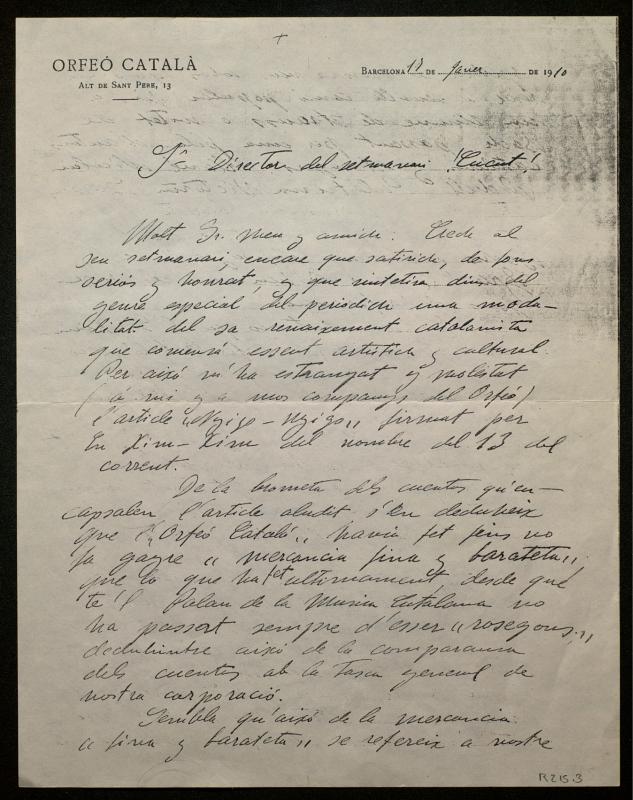 ORFEÓ CATALÀ
ALT DE SANT PERE, 13
BARCELONA 18 DE Janer DE 1910
Sr Director del setmanari ¡Cucut!
Molt Sr. meu y amich: Crech al
seu setmanari, encare que satirich, de fons
seriós y honrat, y que sintetisa dins del
genre especial del periodich una moda-
litat del sa renaixement catalanista
que comensá essent artistich y cultural
Per aixó m'ha estranyat y molestat
(á mi y a mos companys del Orfeó)
l'article "Nyigo-nyigo" firmat per
En Xim-Xim del nombre del 13 del
corrent.
De la brometa dels cuentos qu'en-
capsalen l'article aludit s'en dedueix
que l'"Orfeó Catalá" havia fet fins no
fa gayre "mercancia fina y barateta",
que lo que ha fet ultimament, desde que
te'l Palau de la Musica Catalana no
ha passat sempre d'esser "rosegons,"
deduhintse aixó de la comparansa
dels cuentos ab la tasca general de
nostra corporació.
Sembla qu'aixó de la mercancia
"fina y barateta" se refereix a nostre
R215.3